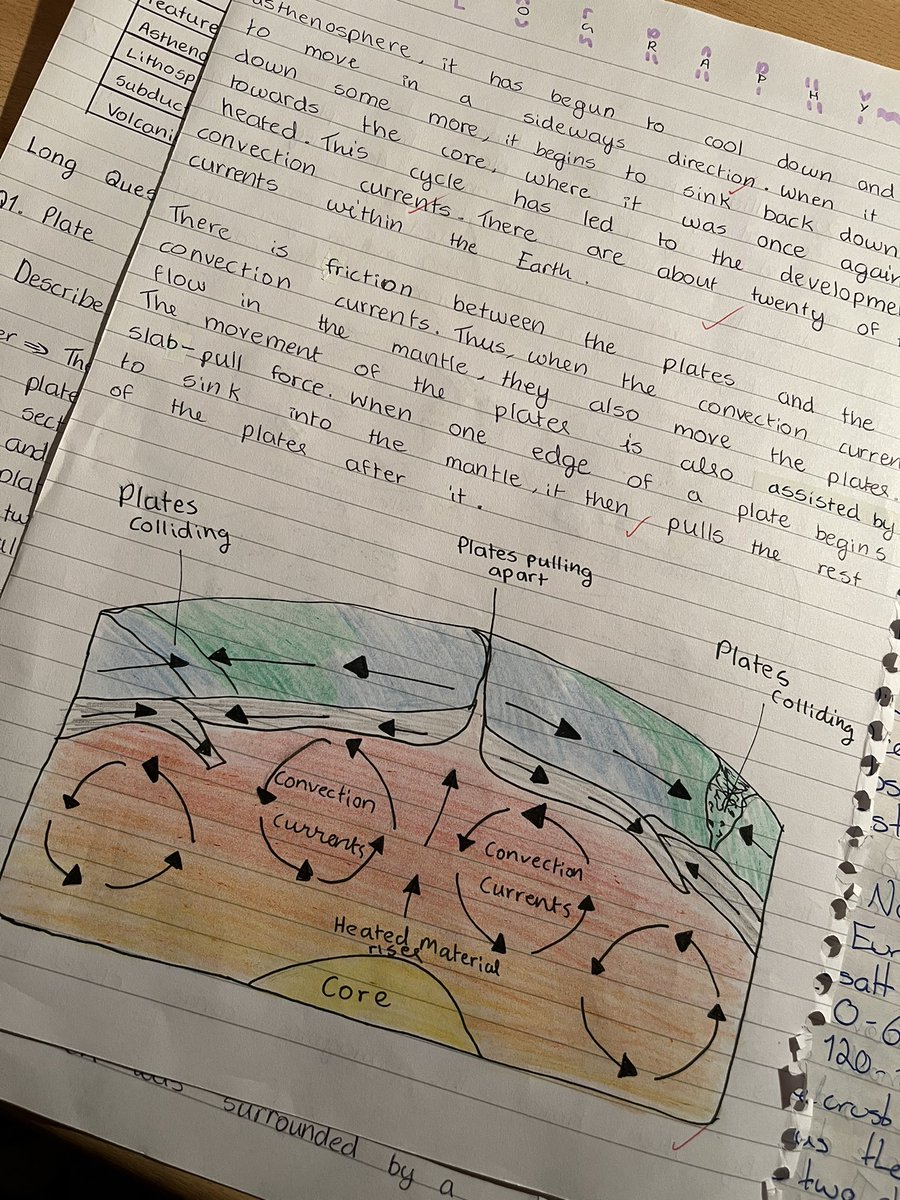 GRAPHY
Feature
Astheno
Lithosp
Subduc
Volcani
Long Ques
Q1. Plate
Describe
er ⇒ The
plate
sect
and
pla
tw
asthenosphere, it has begun to cool down and
to move in a sideways direction. When it
down some more, it begins to sink back down
towards the core, where it was once again
heated. This cycle has led to the developme
convection currents. There are about twenty of
currents within the Earth.
There is friction between the plates and the
convection currents. Thus, when the convection curren
flow in the mantle, they also move the plates.
The movement of the plates is also assisted by
slab-pull force. When one edge of a plate begins
to sink into the mantle, it then pulls the rest
of the plates after it.
Plates
Colliding
Plates pulling
apart
Plates
Colliding
Convection
Currents
Convection
Currents
Heated Material
rises
Core
surrounded by a
No
Eur
salt
0-6
120-
crust
as the
two